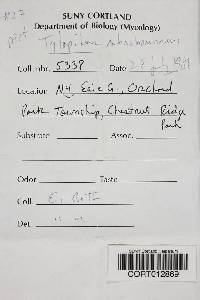 SUNY CORTLAND
Department of Biology (Mycology)
pict Tylopilus
Coll. nbr. 5339 Date 25 July
Location NY, Erie Co., Orchard
Park Township, Chestnut Ridge
Park
Substrate Assoc.
Odor Taste
Coll. E. Both
Det. " "
CORT012869